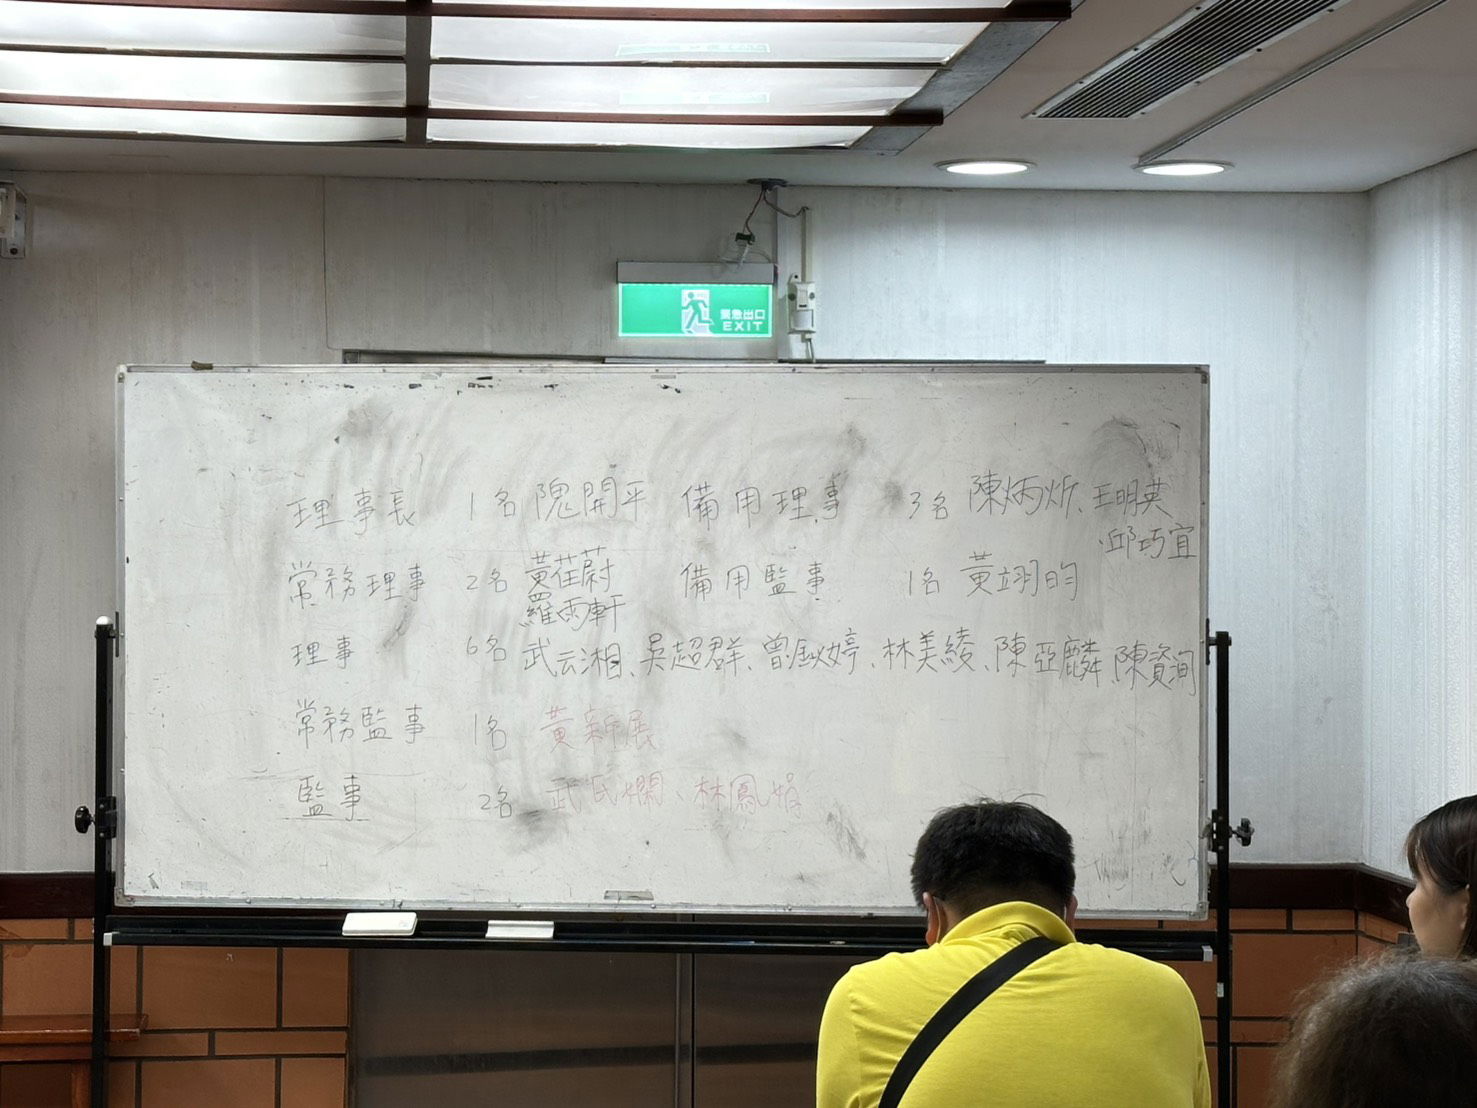 緊急出口
EXIT
理事長 1名 隗開平 備用理事 3名 陳炳炘、王明英
、邱巧宜
常務理事 2名 黃荏蔚 備用監事 1名 黃翊昀
羅雨軒
理事 6名 武云湘、吳超群、曾馦婷、林美綾、陳亞麟、陳資洵
常務監事 1名 黃新展
監事 2名 武氏嫻、林鳳娟